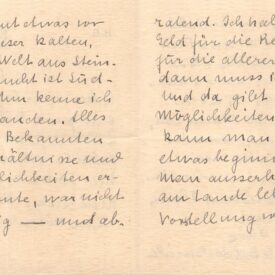 ut etwas vor
ser kalten,
Welt aus Stein.
cht ist Süd-
hn kenne ich
anden. Alles
Bekannten
hältnisse und
lichkeiten er-
nte, war nicht
ig — und ab-
ratend. Ich hab
Geld für die Re
für die allerer
dann muss i
und da gibt
Möglichkeiten
kann man
etwas beginn
man ausserh
am Lande leb
Vorstellung w